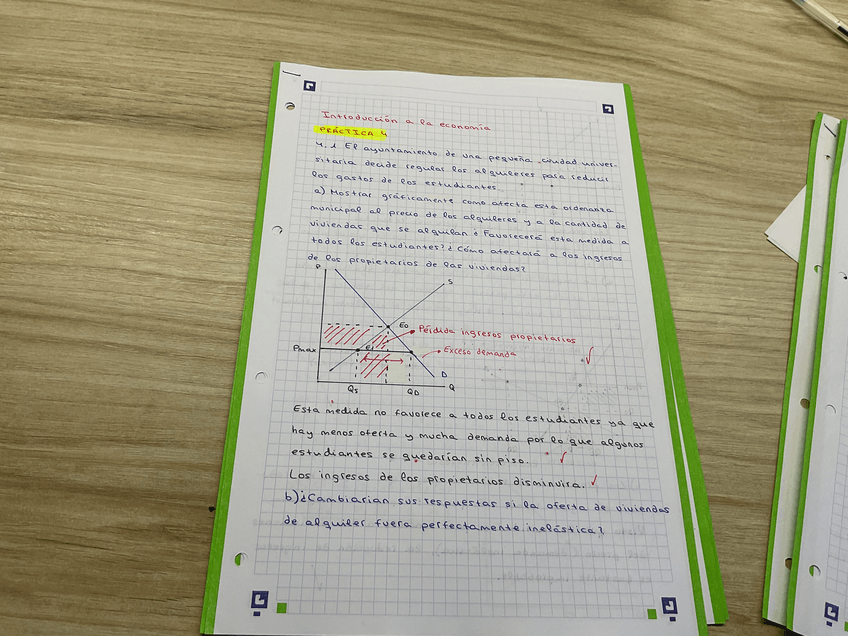 Introducción a la economía
PRÁCTICA 4
4.1 El ayuntamiento de una pequeña ciudad univer-
sitaria decide regular los alquileres para reducir
los gastos de los estudiantes.
a) Mostrar gráficamente como afecta esta ordenanza
municipal al precio de los alquileres y a la cantidad de
viviendas que se alquilan ¿Favorecerá esta medida a
todos los estudiantes? ¿Cómo afectará a los ingresos
de los propietarios de las viviendas?
P
S
E0
Pérdida ingresos propietarios
Pmax
E1
Exceso demanda
D
QS
QD
Q
Esta medida no favorece a todos los estudiantes ya que
hay menos oferta y mucha demanda por lo que algunos
estudiantes se quedarían sin piso.
Los ingresos de los propietarios disminuira.
b) ¿Cambiarían sus respuestas si la oferta de viviendas
de alquiler fuera perfectamente inelástica?